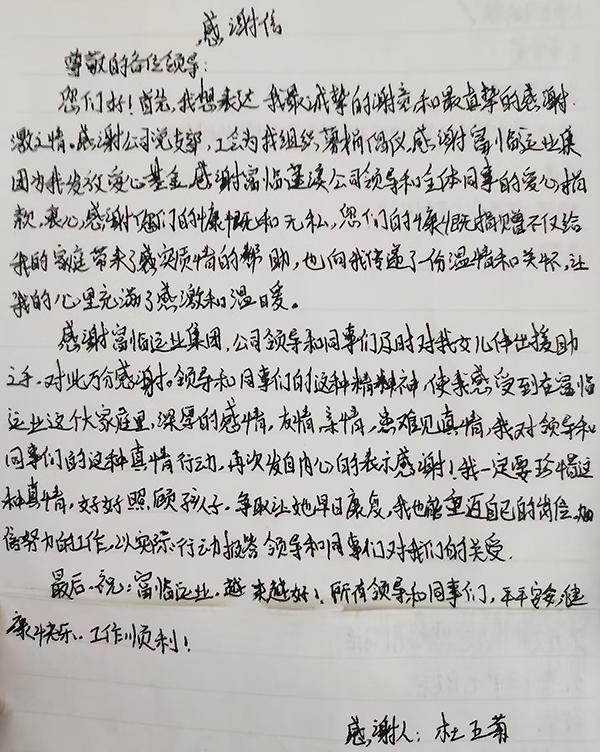 感谢信
尊敬的各位领导:
您们好!首先,我想表达我最诚挚的谢意和最真挚的感谢
激之情。感谢公司党支部,工会为我组织募捐倡仪,感谢富临运业集
团为我发放爱心基金,感谢富临蓬溪公司领导和全体同事的爱心捐
款,衷心感谢你们的慷慨和无私,您们的慷慨捐赠不仅给
我的家庭带来了感实质情的帮助,也向我传递了一份温情和关怀,让
我的心里充满了感激和温暖。
感谢富临运业集团,公司领导和同事们及时对我女儿伸出援助
之手。对此万分感谢。领导和同事们的这种精神,使我感受到在富临
运业这个大家庭里,深厚的感情,友情,亲情,患难见真情,我对领导和
同事们的这种真情行动,再次发自内心的表示感谢!我一定要珍惜这
种真情,好好照顾孩子,争取让她早日康复,我也能重返自己的岗位,加
倍努力的工作,以实际行动报答领导和同事们对我们的关爱.
最后,祝:富临运业,越来越好!所有领导和同事们,平平安安,健
康快乐,工作顺利!
感谢人:杜玉菊